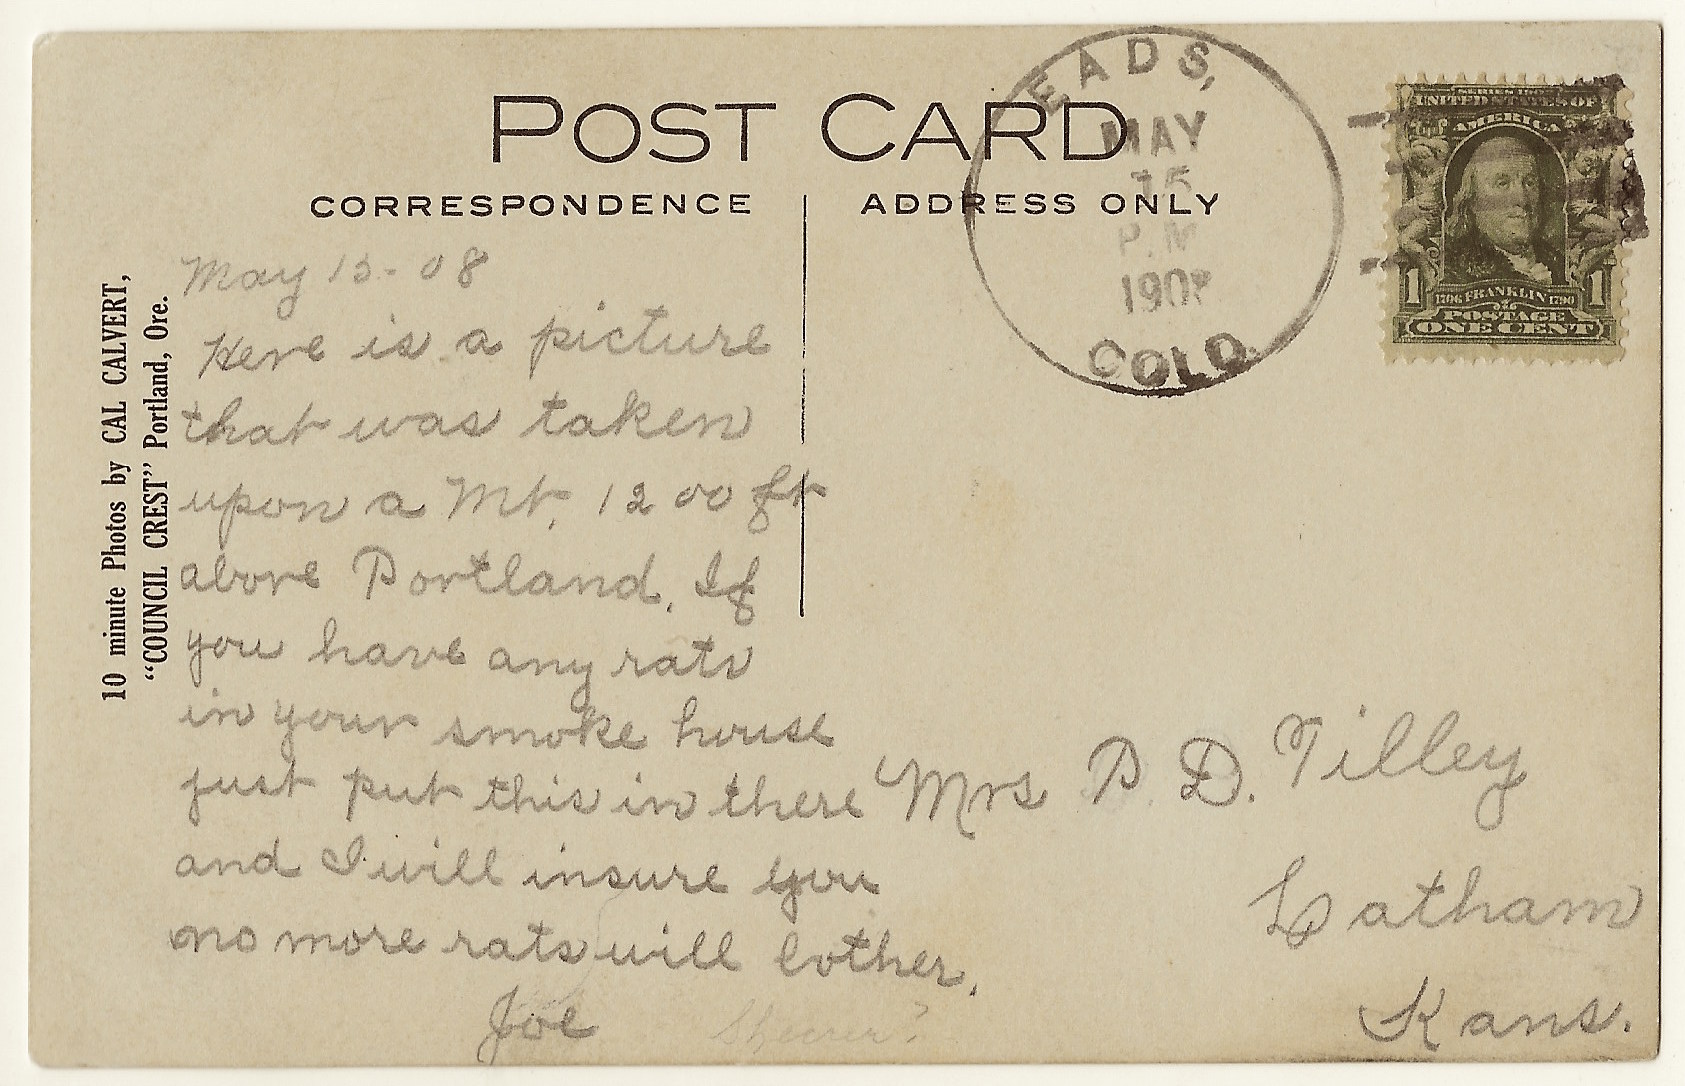 POST CARD
CORRESPONDENCE
ADDRESS ONLY
EADS,
MAY
15
P.M
1908
COLO.
SERIES 1902
UNITED STATES OF
AMERICA
1706 FRANKLIN 1790
1 1
POSTAGE
ONE CENT
10 minute Photos by CAL CALVERT,
"COUNCIL CREST" Portland, Ore.
May 15-08
Here is a picture
that was taken
upon a Mt. 1200 ft
above Portland. If
you have any rats
in your smoke house
just put this in there
and I will insure you
no more rats will bother.
Joe
Mrs P. D. Tilley
Latham
Kans.